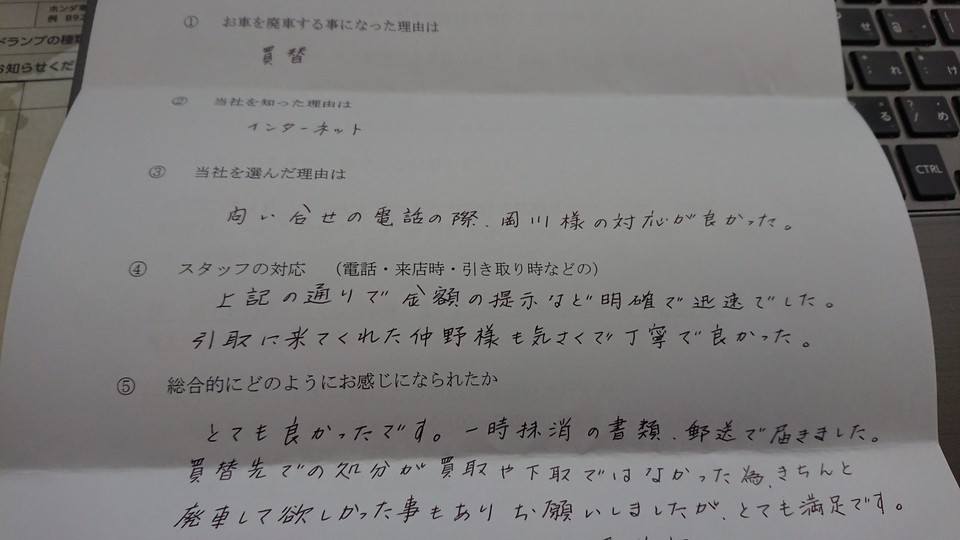 ホンダ車
例 B92
ドランプの種類
お知らせくだ
① お車を廃車する事になった理由は
買替
② 当社を知った理由は
インターネット
③ 当社を選んだ理由は
向い合せの電話の際、岡川様の対応が良かった。
④ スタッフの対応 (電話・来店時・引き取り時などの)
上記の通りで金額の提示など明確で迅速でした。
引取に来てくれた仲野様も気さくで丁寧で良かった。
⑤ 総合的にどのようにお感じになられたか
とても良かったです。一時抹消の書類、郵送で届きました。
買替先での処分が買取や下取ではなかった為、きちんと
廃車して欲しかった事もありお願いしましたが、とても満足です。
れ
け
る
め
CTRL